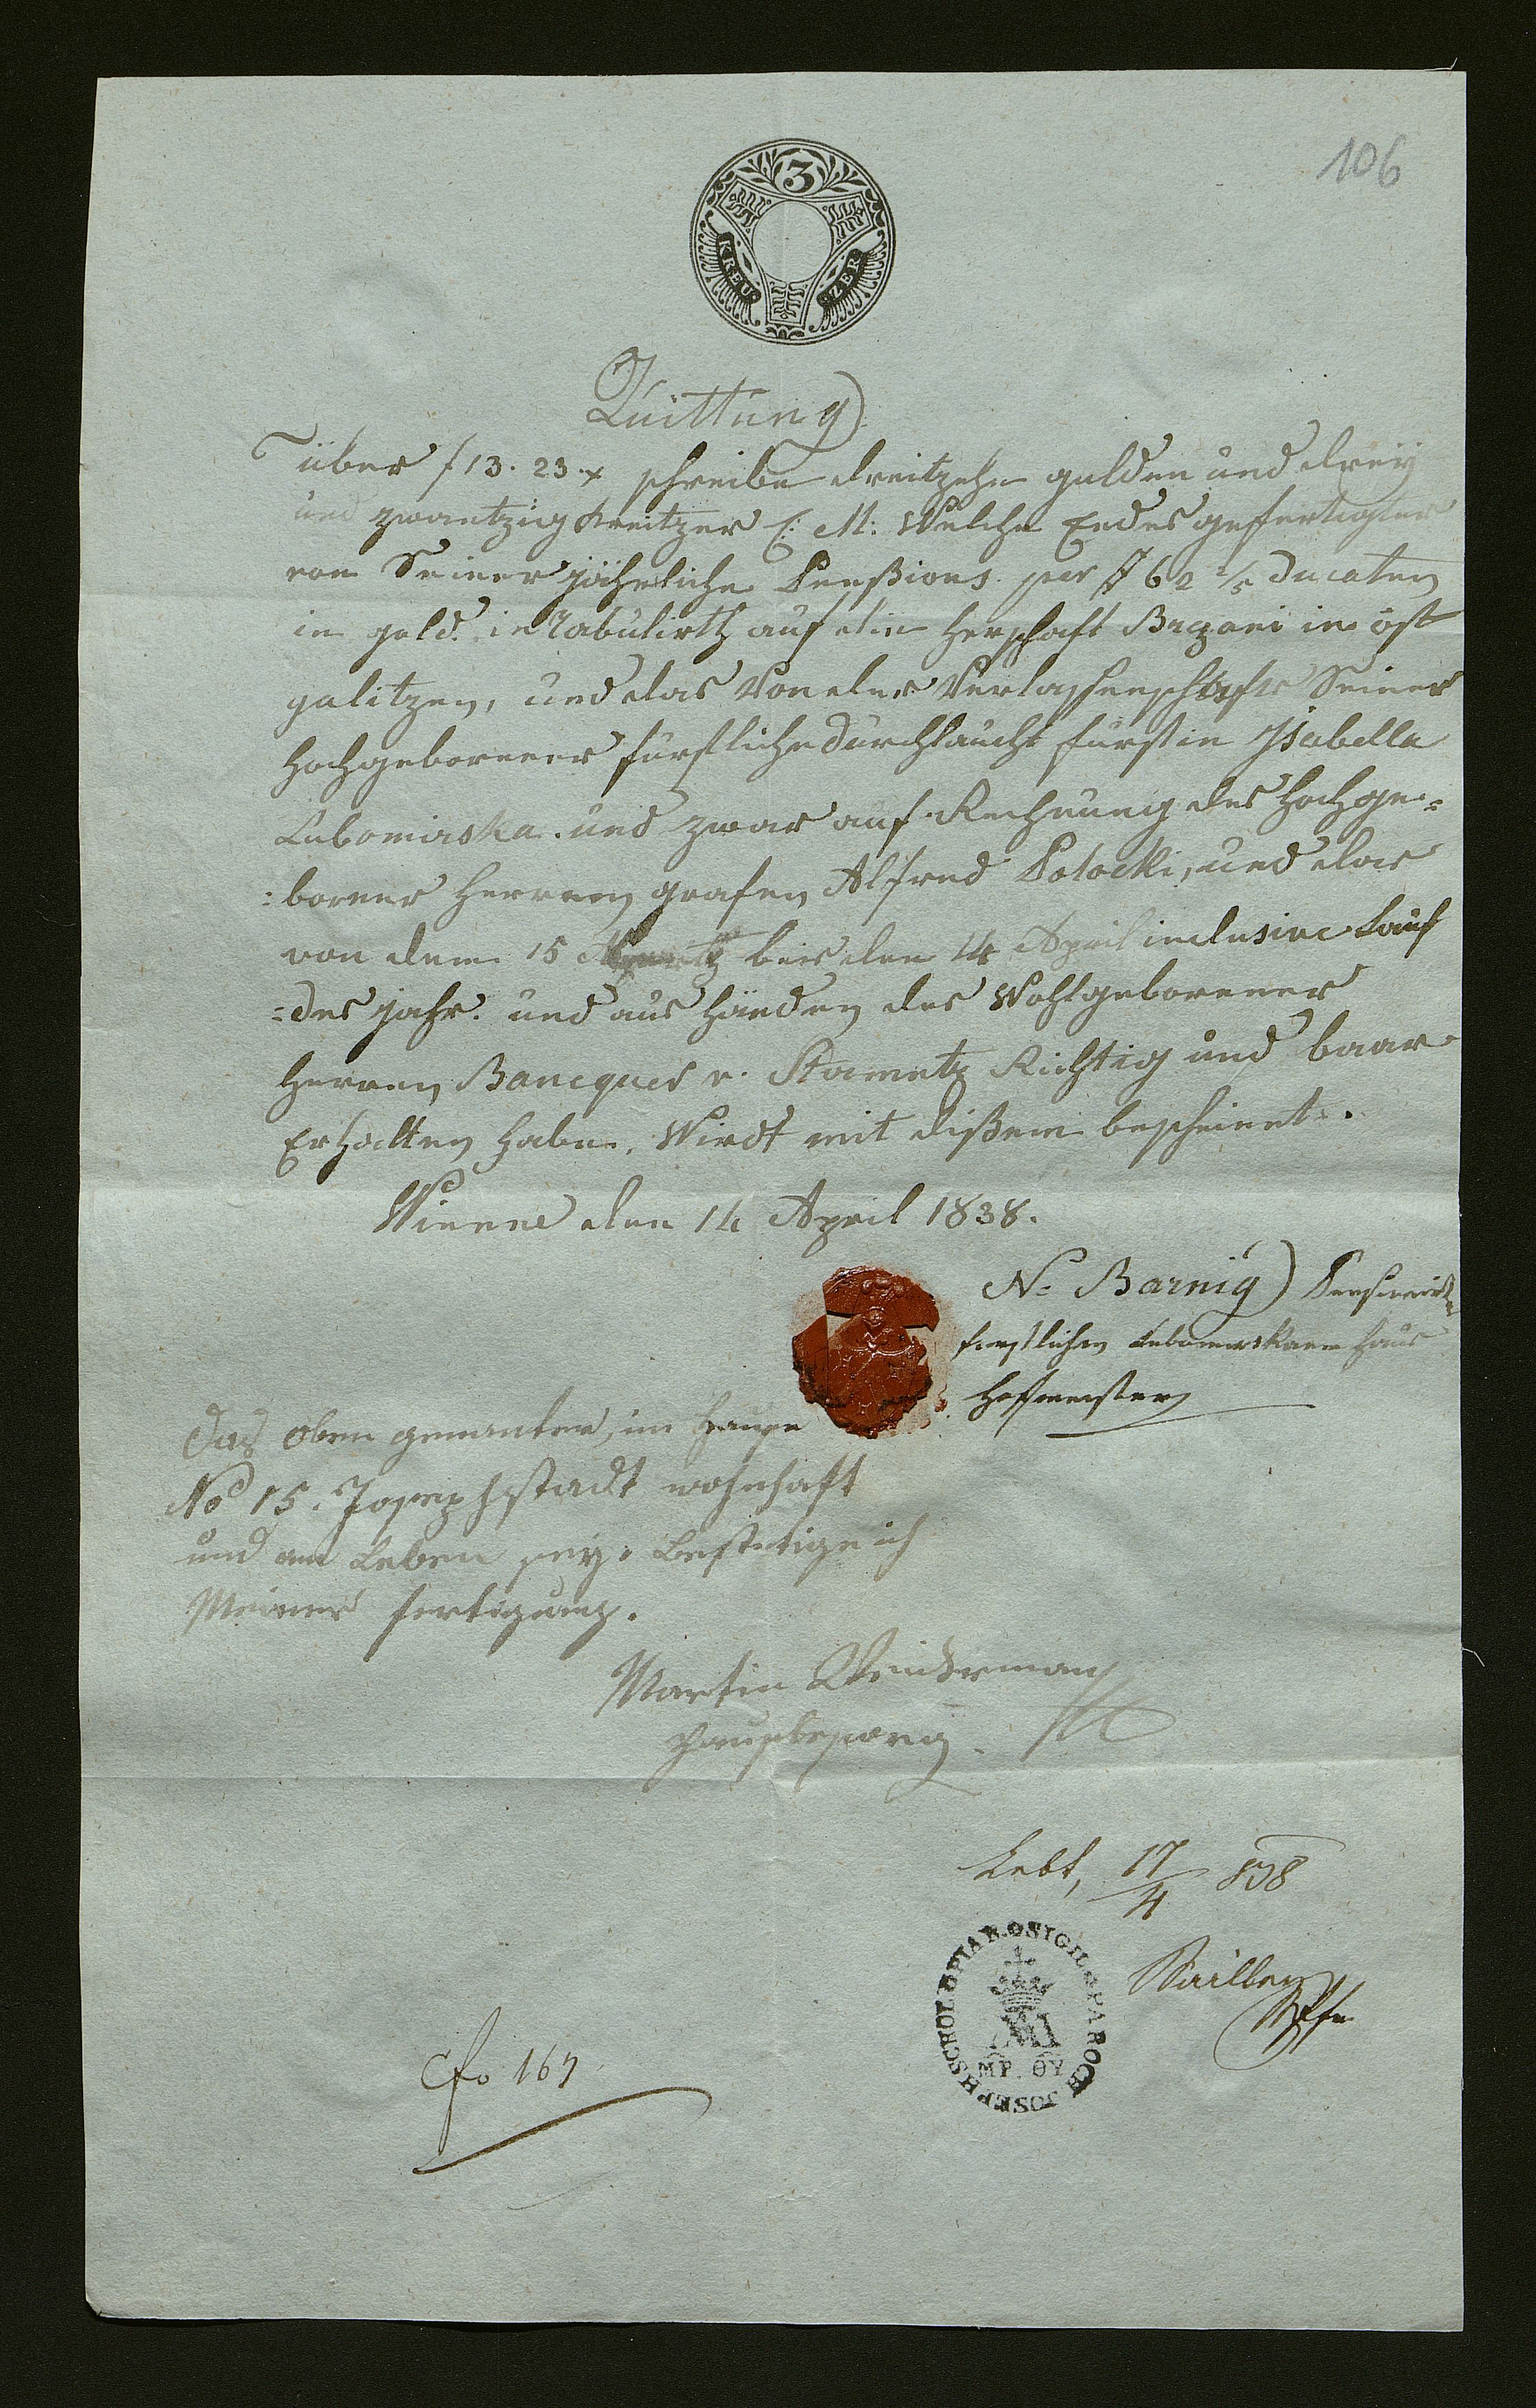 106
3
KREU ZER
Quittung
über f 13. 23. x schreibe dreitzehn gulden und dreÿ
und zwantzig Kreitzer C: M: Welche Endesgefertigter
von Seiner jährliche Penßions per # 62 2/5 Ducaten
in gold. in Tabulirth auf die Herschaft Brzani in öst
galitzen, und das Von der Verlassenschafts Seiner
Hochgeborener fürstliche Durchlaucht fürstin Isabella
Lubomirska. und zwar auf Rechnung des Hochge=
=borner Herren grafen Alfred Potocki, und das
von dem 15 bis den 14 April inclusive Lauf
=des jahr. und aus Händen des Wohlgeborener
Herren Bancques v. Stametz Richtig und baar
Erhalten habe. Wirdt mit dißem bescheinet.
Wienne den 14 April 1838.
N: Barnig) Pensionirte
furstlichen Lubomirskaem Haus
Hofmeister
Das oben genanter, im Hause
No 15. Josephstadt wohnhaft
und am Leben seÿ. bestetige ich
Meiner fertigung.
Martin
Hausbesorg
Lebt, 17/4 838
SIGIL. PAROCH JOSEPH SCHOL. PIAR.
MP. ΘY
Pfr
fo 167